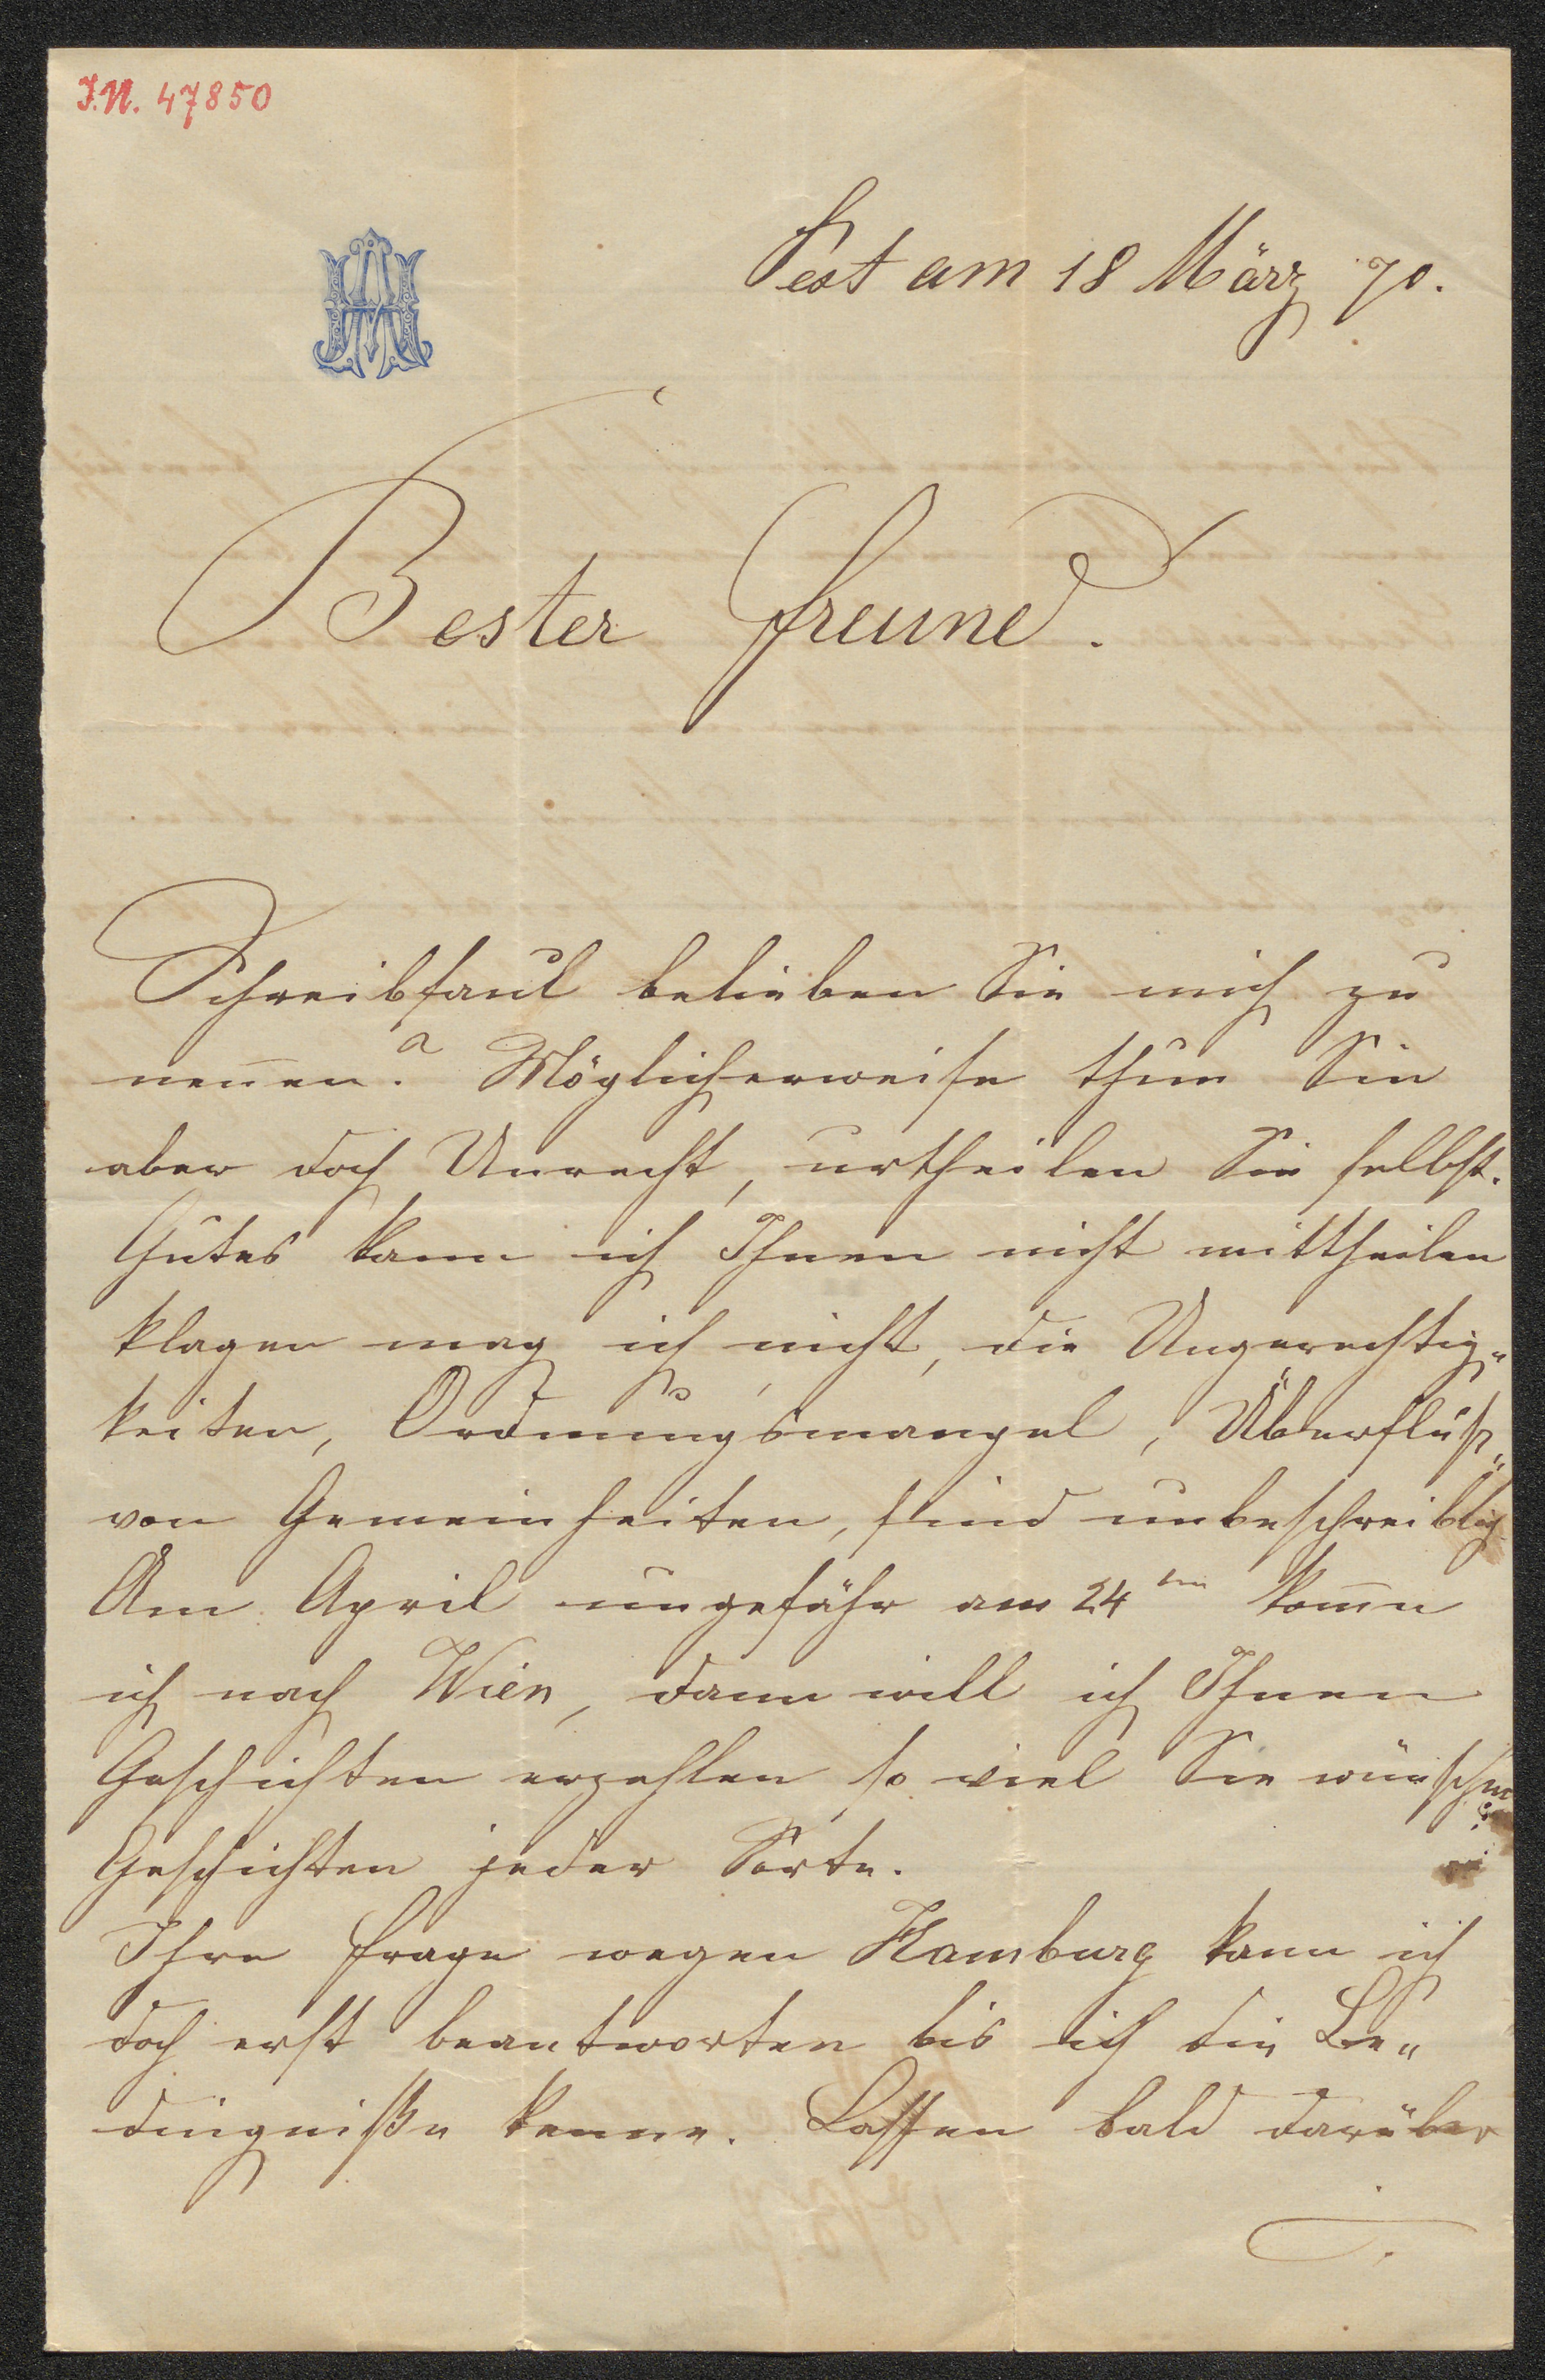 I.N. 47850
Pest am 18 März 70.
Bester Freund.
Schreibfaul belieben Sie mich zu
nen̄en? Möglicherweise thun Sie
aber doch Unrecht, urtheilen Sie selbst.
Gutes kann ich Ihnen nicht mittheilen
klagen mag ich nicht, die Ungerechtig„
keiten, Ordnungsmangel, Überfluß„
von Gemeinheiten, sind unbeschreiblich
Am April ungefähr am 24ten kom̄e
ich nach Wien, dann will ich Ihnen
Geschichten erzehlen so viel Sie wünschen
Geschichten jeder Sorte.
Ihre Frage wegen Hamburg kann ich
doch erst beantworten bis ich die Be„
dingniße kenne. Lassen bald darüber